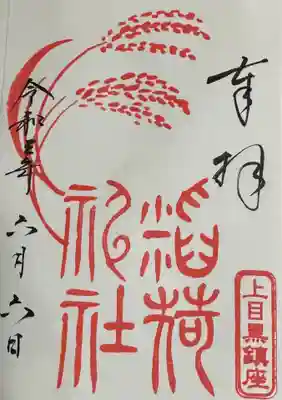 奉拝
稲荷
神社
上目黒鎮座
令和三年
六月六日